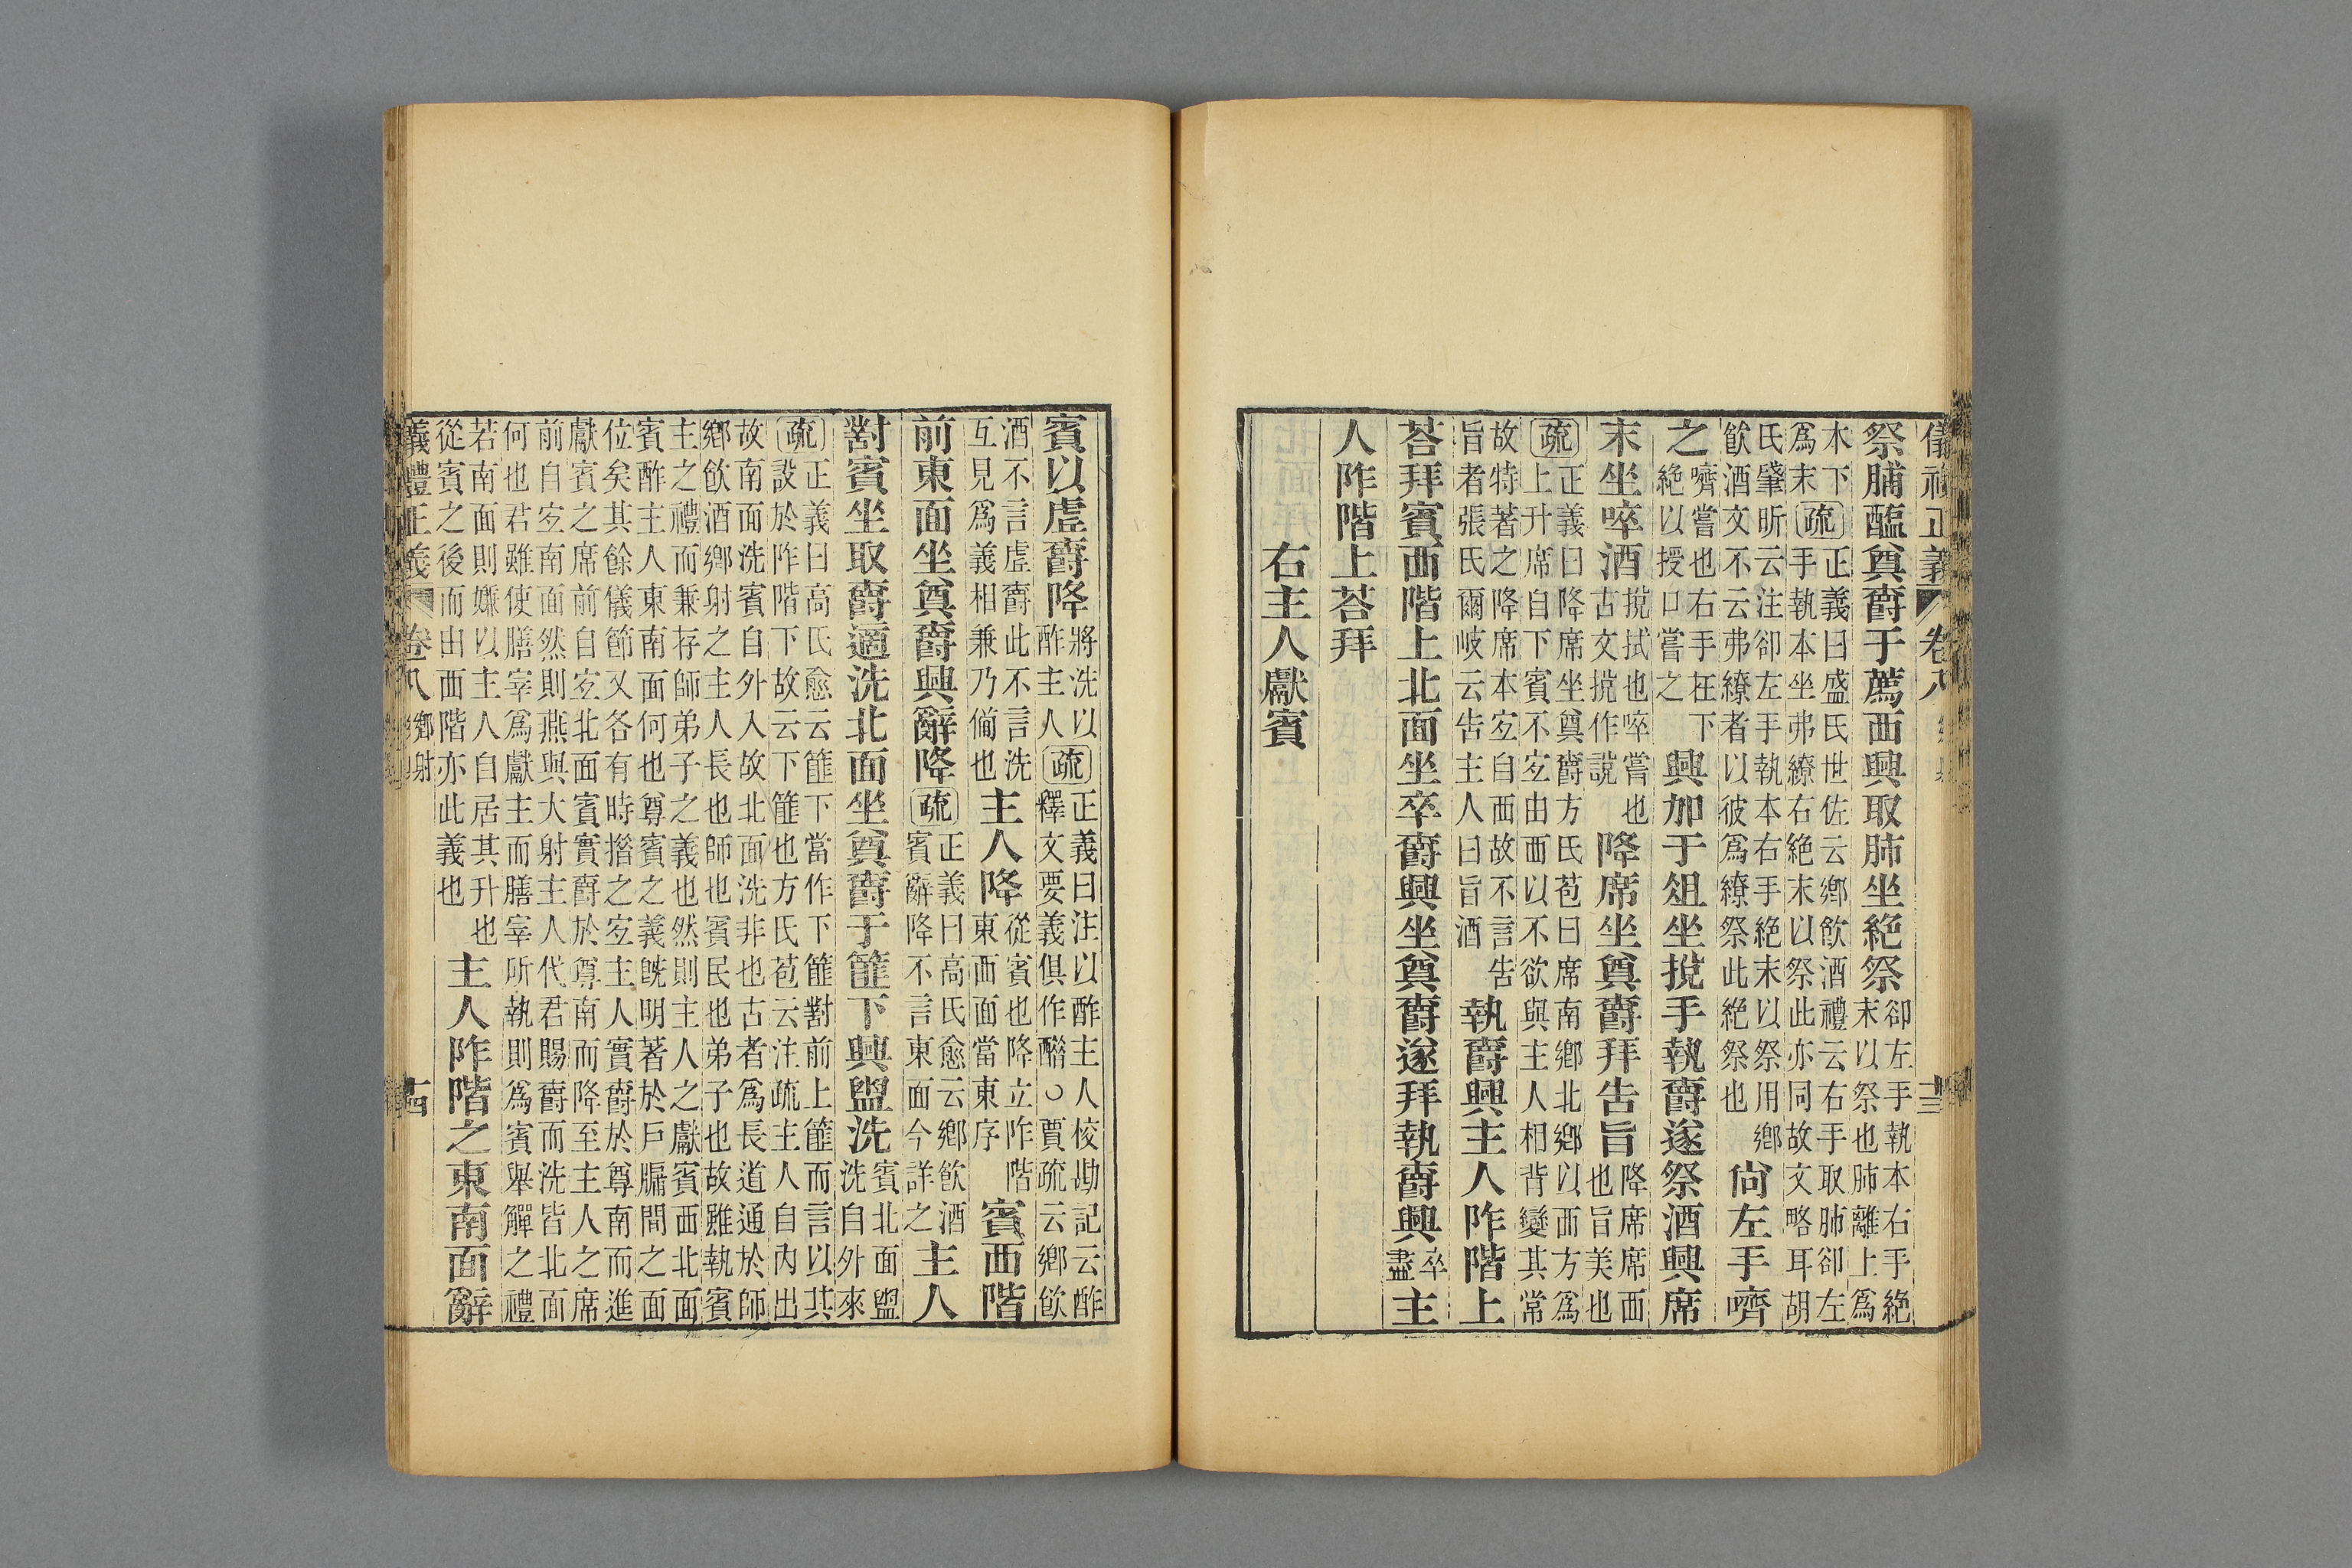 儀禮正義 卷八 十三
祭脯醢奠爵于薦西興取肺坐絕祭卻左手執本右手絕末以祭也肺離上爲
本下爲末疏正義曰盛氏世佐云鄉飲酒禮云右手取肺卻左手執本坐弗繚右絕末以祭此亦同故文略耳胡
氏肇昕云注卻左手執本右手絕末以祭用鄉飲酒文不云弗繚者以彼爲繚祭此絕祭也尙左手嚌
之嚌嘗也右手在下絕以授口嘗之興加于俎坐挩手執爵遂祭酒興席
末坐啐酒挩拭也啐嘗也古文挩作說降席坐奠爵拜告旨降席席西也旨美也
疏正義曰降席坐奠爵方氏苞曰席南鄉北鄉以西方爲上升席自下賓不宐由西以不欲與主人相背變其常
故特著之降席本宐自西故不言告旨者張氏爾岐云告主人曰旨酒執爵興主人阼階上
荅拜賓西階上北面坐卒爵興坐奠爵遂拜執爵興卒盡主
人阼階上荅拜
右主人獻賓
賓以虛爵降將洗以酢主人疏正義曰注以酢主人校勘記云酢釋文要義俱作醋○賈疏云鄉飲
酒不言虛爵此不言洗互見爲義相兼乃備也主人降從賓也降立阼階東西面當東序賓西階
前東面坐奠爵興辭降疏正義曰高氏愈云鄉飲酒賓辭降不言東面今詳之主人
對賓坐取爵適洗北面坐奠爵于篚下興盥洗賓北面盥洗自外來
疏正義曰高氏愈云篚下當作下篚對前上篚而言以其設於阼階下故云下篚也方氏苞云注疏主人自內出
故南面洗賓自外入故北面洗非也古者爲長道通於師鄉飲酒鄉射之主人長也師也賓民也弟子也故雖執賓
主之禮而兼存師弟子之義也然則主人之獻賓西北面賓酢主人東南面何也尊賓之義旣明著於戶牖間之面
位矣其餘儀節又各有時措之宐主人實爵於尊南而進獻賓之席前自宐北面賓實爵於尊南而降至主人之席
前自宐南面然則燕與大射主人代君賜爵而洗皆北面何也君雖使膳宰爲獻主而膳宰所執則爲賓舉觶之禮
若南面則嫌以主人自居其升也從賓之後而由西階亦此義也主人阼階之東南面辭
儀禮正義 卷八 鄉射 十四